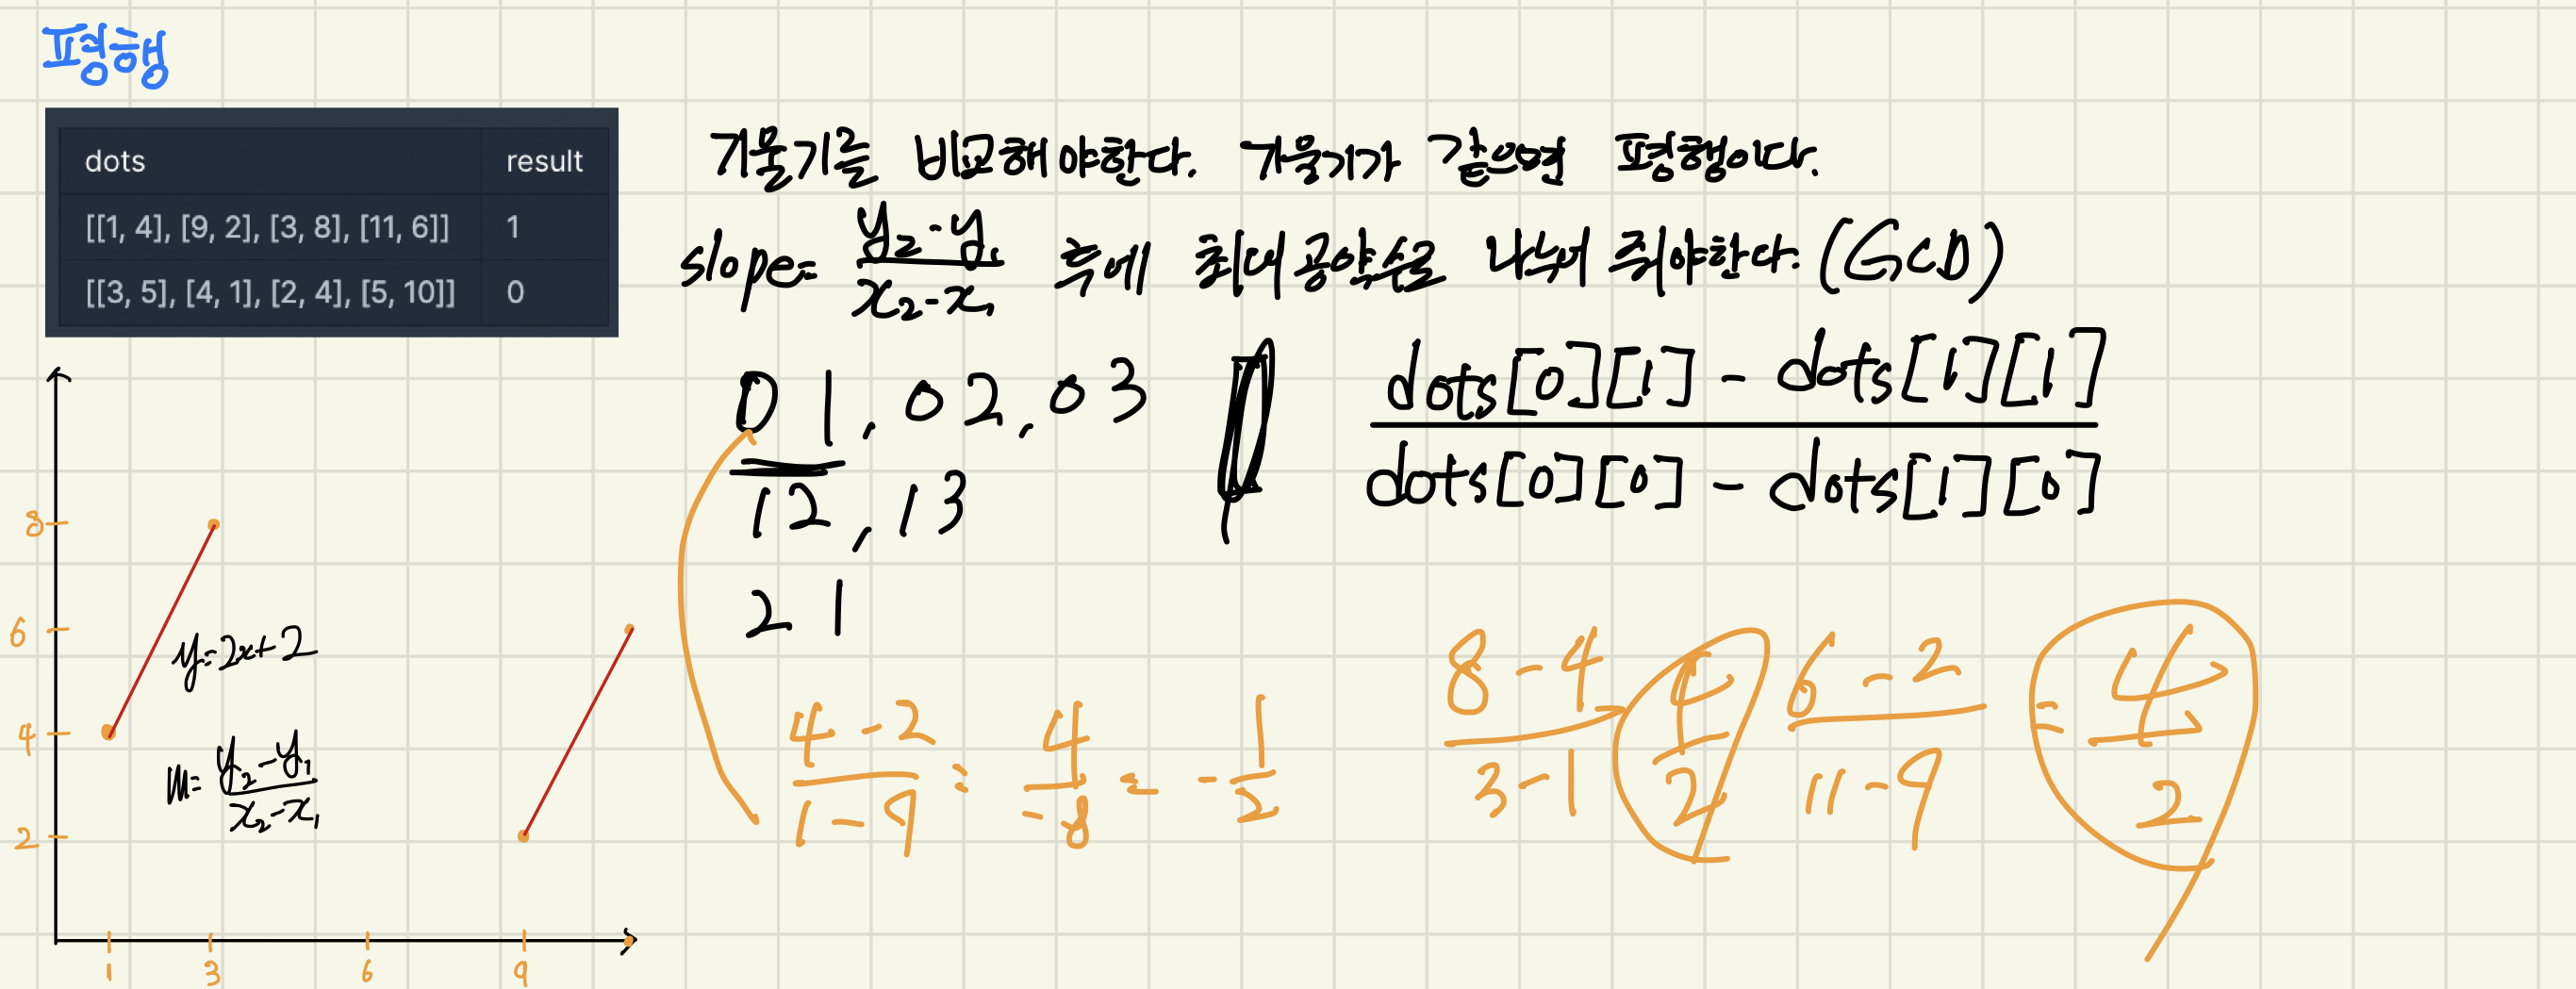 평행
dots result
[[1, 4], [9, 2], [3, 8], [11, 6]] 1
[[3, 5], [4, 1], [2, 4], [5, 10]] 0
기울기를 비교해야한다. 기울기가 같으면 평행이다.
slope= y₂-y₁ / x₂-x₁ 후에 최대공약수로 나누어 줘야한다. (GCD)
01, 02, 03
12, 13
21
dots[0][1] - dots[1][1]
dots[0][0] - dots[1][0]
8
6
4
2
1 3 6 9
y=2x+2
m= y₂-y₁ / x₂-x₁
4-2 / 1-9 = 4 / -8 = - 1 / 2
8-4 / 3-1 4 / 2
6-2 / 11-9 = 4 / 2